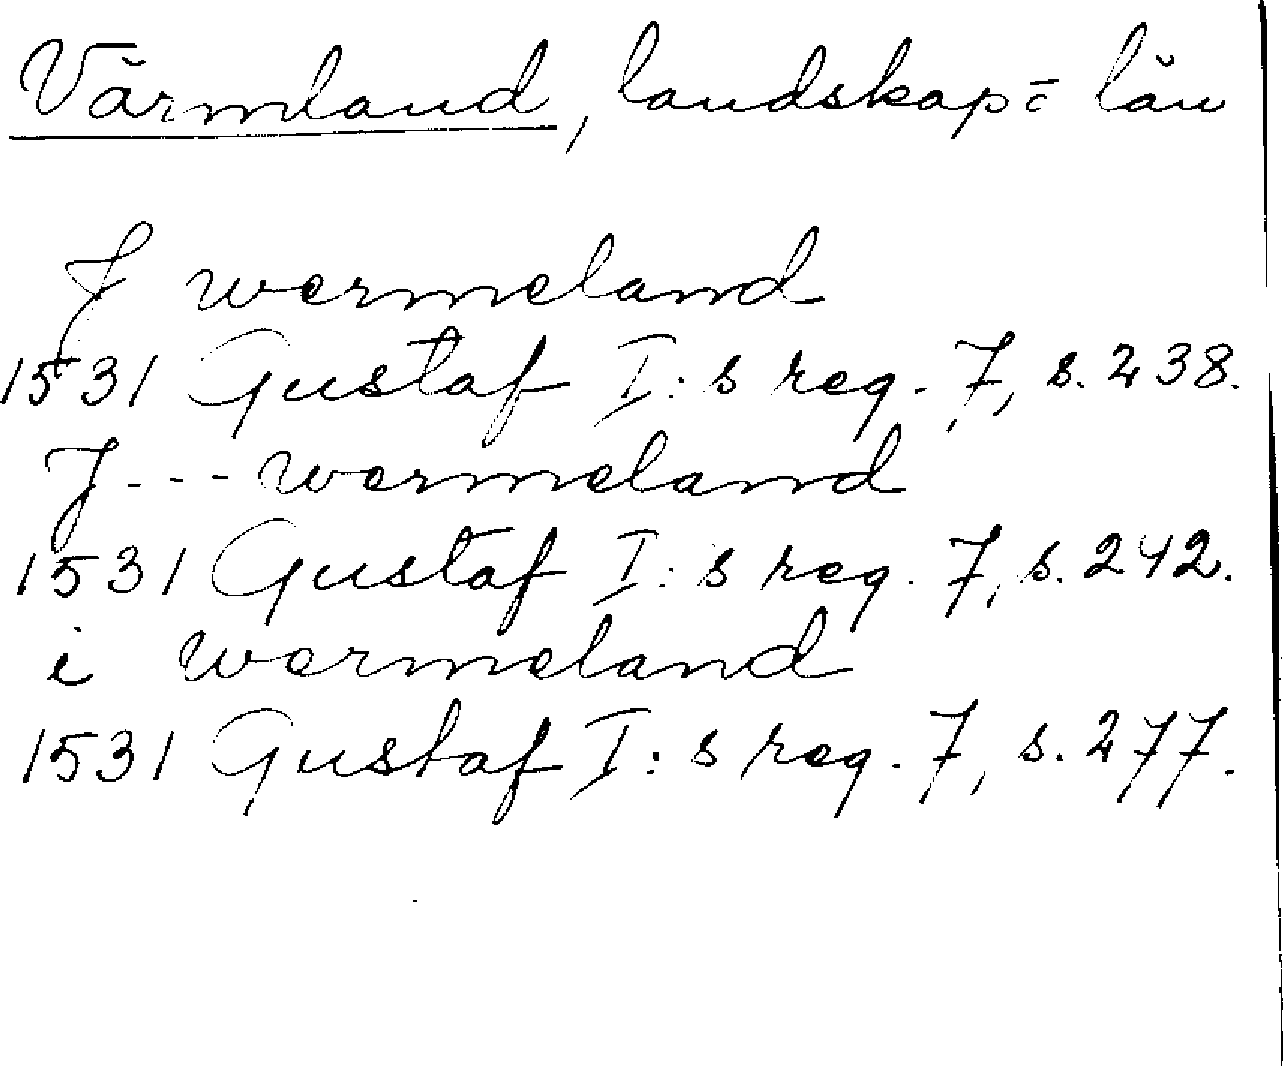 Värmland, landskap = län
J wermeland
1531 Gustaf I:s reg. 7, s. 238.
J --- wermeland
1531 Gustaf I:s reg. 7, s. 242.
i wermeland
1531 Gustaf I:s reg. 7, s. 277.